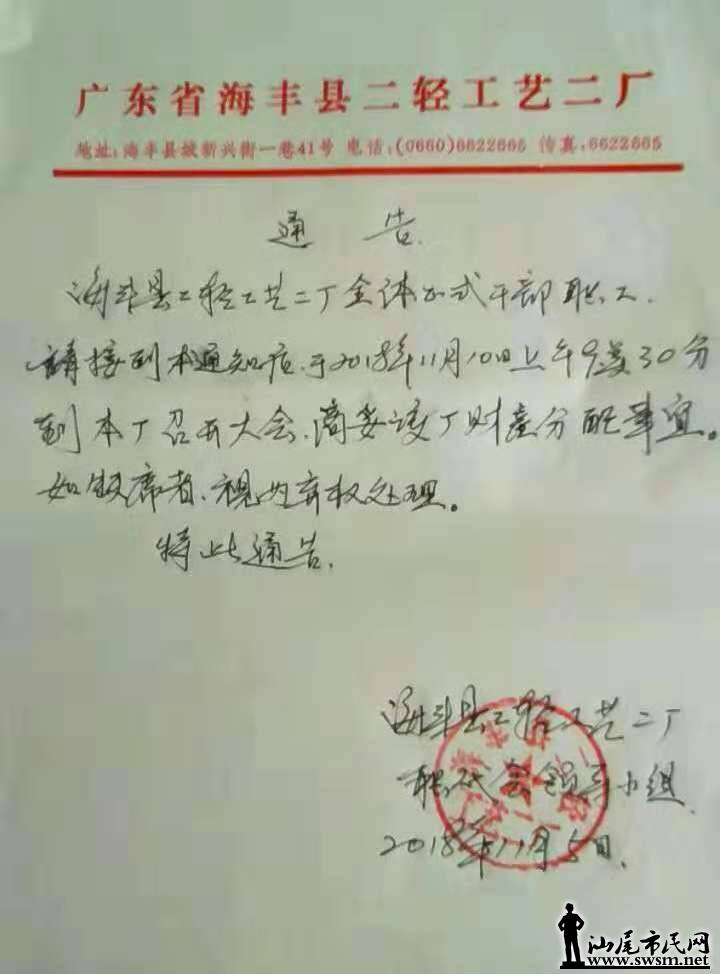 广东省海丰县二轻工艺二厂
地址:海丰县城新兴街一巷41号 电话:(0660)6622665 传真:6622665
通 告
海丰县二轻工艺二厂全体正式干部职工.
請接到本通知后.于2018年11月10日上午9点30分
到本厂召开大会、商妥该厂财产分配事宜。
如缺席者、视为弃权处理。
特此通告.
海丰县二轻工艺二厂
职代会领导小组.
2018年11月5日.
汕尾市民网
www.swsm.net